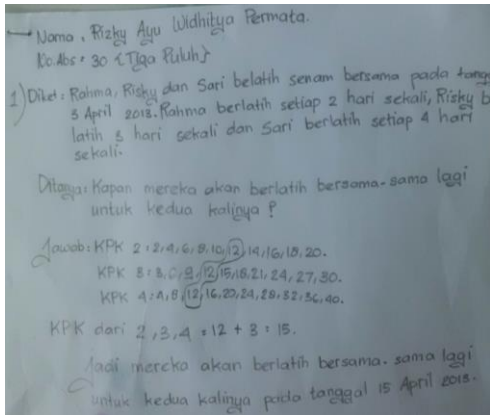 Nama : Rizky Ayu Widhitya Permata.
No.Abs = 30 {Tiga Puluh}
1) Diket : Rahma, Risky dan Sari belatih senam bersama pada tangg
3 April 2018. Rahma berlatih setiap 2 hari sekali, Risky b
latih 3 hari sekali dan Sari berlatih setiap 4 hari
sekali.
Ditanya : Kapan mereka akan berlatih bersama-sama lagi
untuk kedua kalinya ?
Jawab : KPK 2 : 2, 4, 6, 8, 10, 12, 14, 16, 18, 20.
KPK 3 : 3, 6, 9, 12, 15, 18, 21, 24, 27, 30.
KPK 4 : 4, 8, 12, 16, 20, 24, 28, 32, 36, 40.
KPK dari 2, 3, 4 = 12 + 3 = 15.
Jadi mereka akan berlatih bersama-sama lagi
untuk kedua kalinya pada tanggal 15 April 2018.